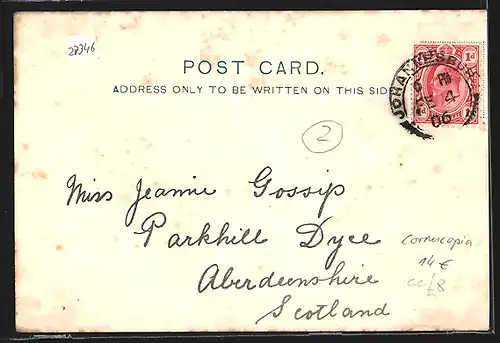 27346
POST CARD.
ADDRESS ONLY TO BE WRITTEN ON THIS SIDE
JOHANNESBURG
PM
4
06
1d
1d
2
Miss Jeannie Gossip
Parkhill Dyce
Aberdeenshire
Scotland
cornucopia
14 €
£8